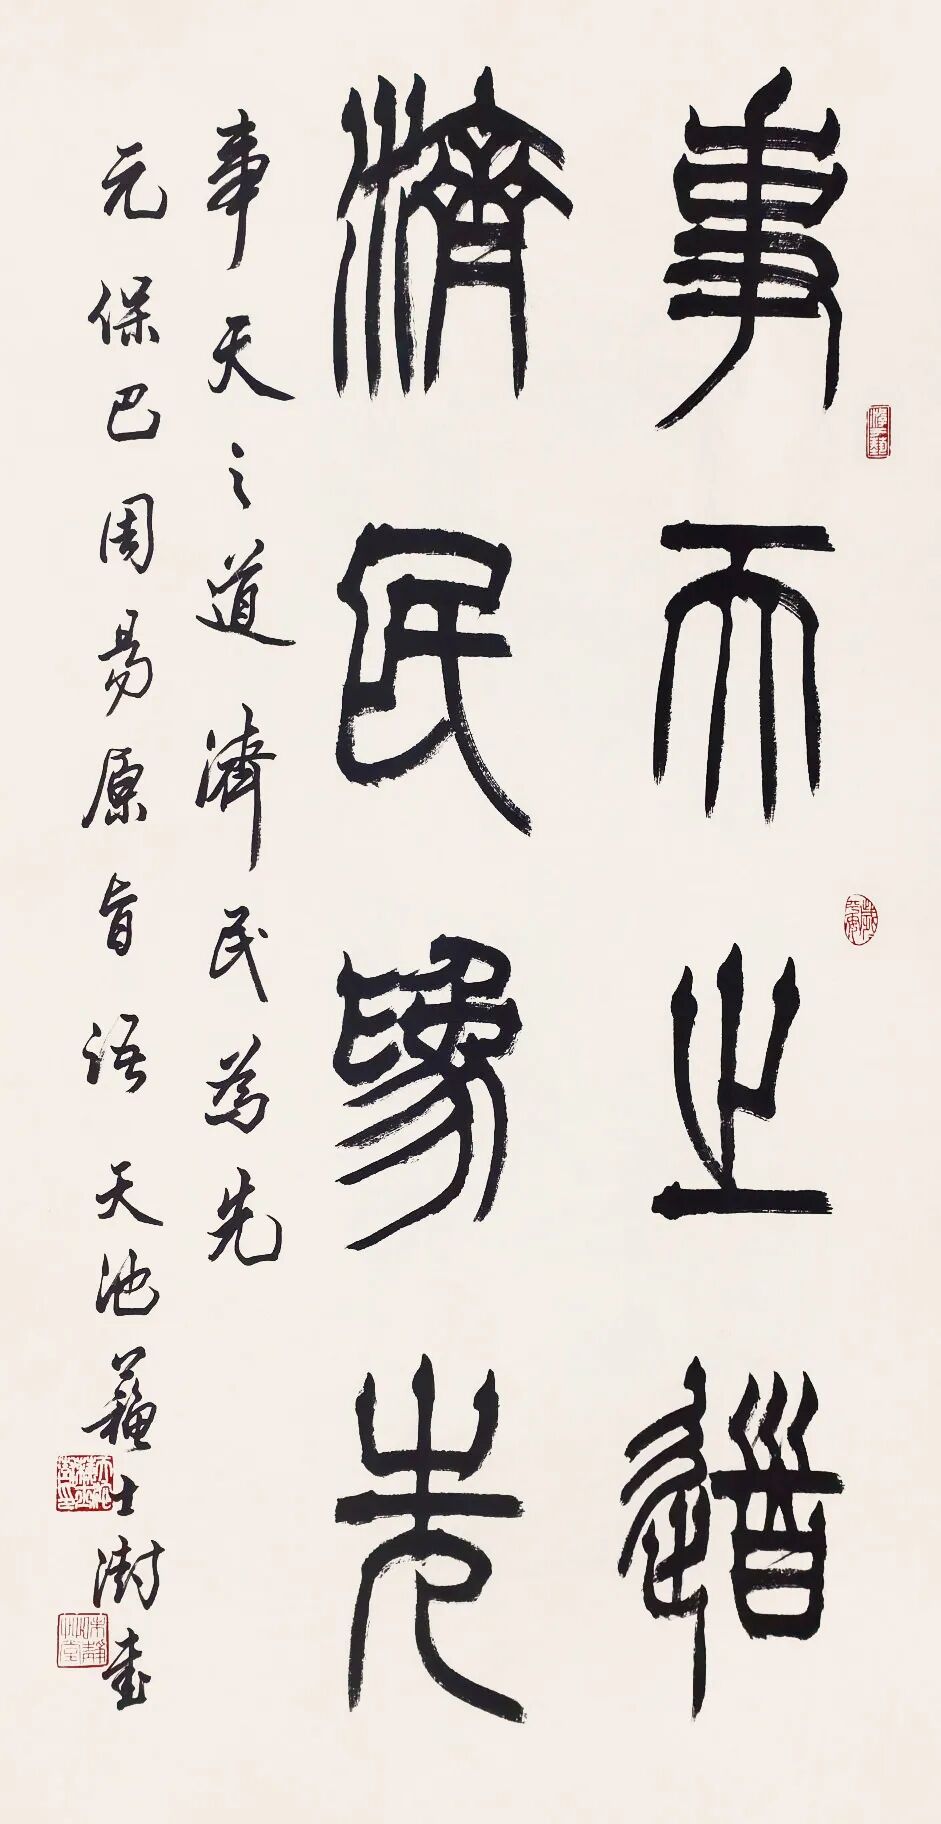 事天之道
濟民為先
事天之道濟民為先
元保巴周易原旨語天池蘇士澍書